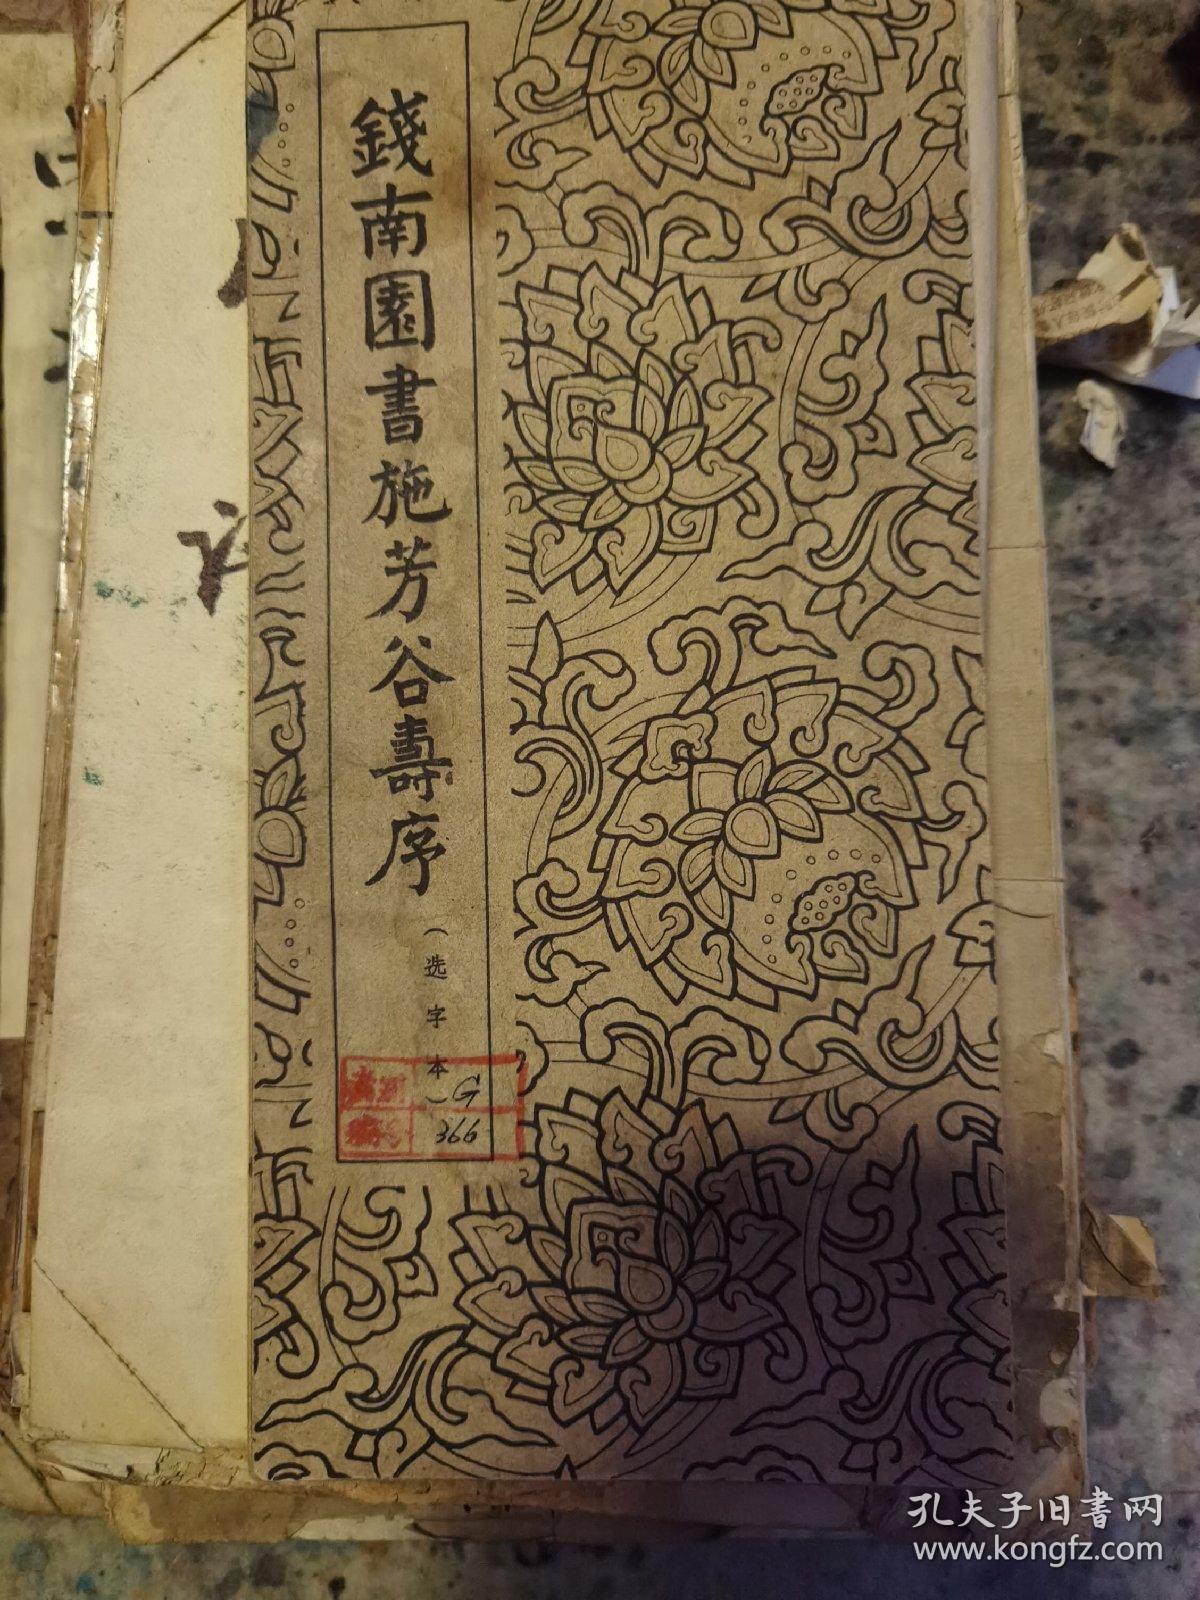 錢南園書施芳谷壽序
（选字本）
G
366
孔夫子旧书网
www.kongfz.com